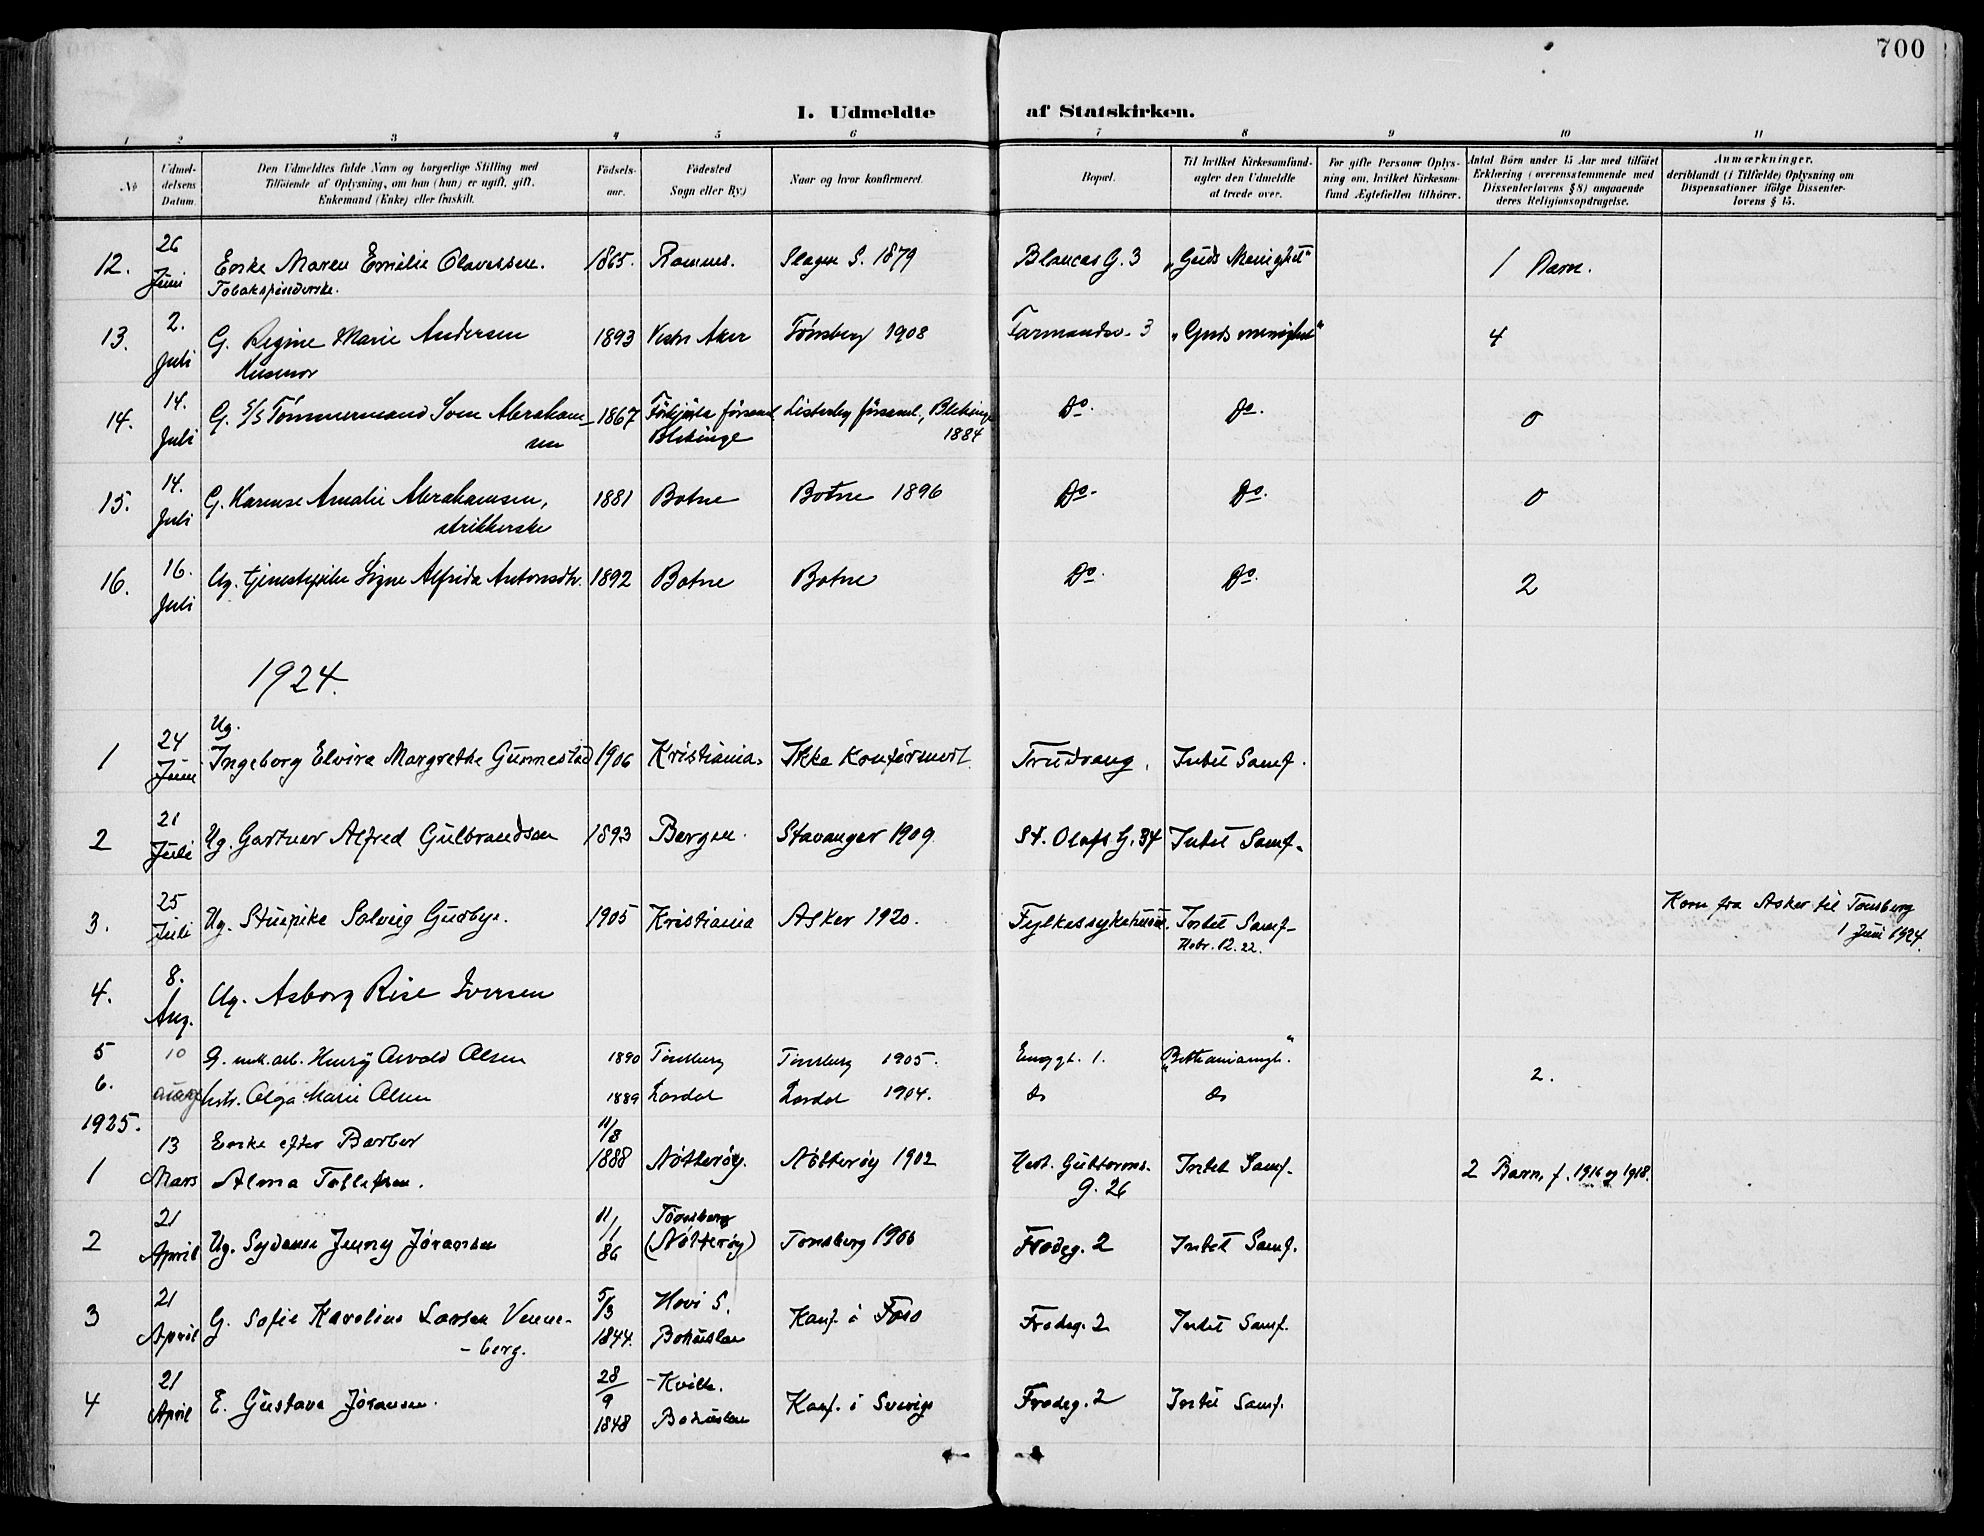 700
I. Udmeldte af Statskirken.
1 2 3 4 5 6 7 8 9 10 11
No
Udmeldelsens Datum.
Den Udmeldtes fulde Navn og borgerlige Stilling med
Tilföiende af Oplysning, om han (hun) er ugift, gift,
Enkemand (Enke) eller fraskilt.
Födselsaar.
Födested
Sogn eller By.)
Naar og hvor konfirmeret.
Bopæl.
Til hvilket Kirkesamfund
agter den Udmeldte
at træde over.
For gifte Personer Oplys-
ning om, hvilket Kirkesam-
fund Ægtefællen tilhører.
Antal Börn under 15 Aar med tilföiet
Erklæring (overensstemmende med
Dissenterlovens § 8) angaaende
deres Religionsopdragelse.
Anmærkninger,
deriblandt (i Tilfælde) Oplysning om
Dispensationer ifölge Dissenter-
lovens § 15.
12. 26 Juni Enke Maren Emilie Olavessen. 1865. Ramnes. Slagen S. 1879 Blancas G. 3 "Guds Menighet" 1 Barn.
Tobakspinderske.
13. 2. Juli G. Regine Marie Andersen 1893 Vestre Aker Tönsberg 1908 Farmandsv. 3 "Guds menighet" 4
Husmor
14. 14. Juli G. Tömmermand Sven Abraham- 1867 församl. Listerby församl., Blekinge Do. Do. 0
sen Blekinge 1884
15. 14. Juli G. Karense Amalie Abrahamsen, 1881 Botne Botne 1896 Do. Do. 0
strikkerske
16. 16. Juli Ug. tjenestepike Signe Alfrida Antonsdtr. 1892 Botne Botne Do. Do. 2
1924.
Ug.
1 24 Juni Ingeborg Elvira Margrethe Gunnestad 1906 Kristiania. Ikke Konfirmert. Trudvang. Intet Samf.
2 21 Juli Ug. Gartner Alfred Gulbrandsen 1893 Bergen. Stavanger 1909 St. Olafs G. 34 Intet Samf.
3. 25 Juli Ug. Stuepike Solveig Gudbye. 1905 Kristiania Asker 1920. Fylkessykehuset. Intet Samf. Kom fra Asker til Tønsberg
Hebr. 12. 22. 1 Juni 1924.
4. 8. Aug. Ug. Asborg Rise Iversen
5 10 G. mek. arb. Henry Arvold Olsen 1890 Tönsberg Tönsberg 1905. Enggt. 1. "Bethaniamgh."
6. august Olga Marie Olsen 1889 Lardal Lardal 1904. do do 2.
1925.
1 13 Mars Enke efter Barber 11/8 1888 Nøtterøy. Nøtterøy 1902 Hert. Guttorms- Intet Samf. 2 Barn, f. 1916 og 1918.
Alma Tollefsen. G. 26
2 21 April Ug. Sydame Jenny Jöransen 11/1 86 Tönsberg (Nøtterøy) Tønsberg 1900 Frodeg. 2 Intet Samf.
3 21 April G. Sofie Karoline Larsen Venne- 5/3 1844. Hovi S. Bohuslen Konf. i Foss Frodeg. 2 Intet Samf.
- berg.
4 21 April E. Gustava Jöransen. 28/9 1848 Kville. Bohuslen Konf. i Sverige Frodeg. 2 Intet Samf.